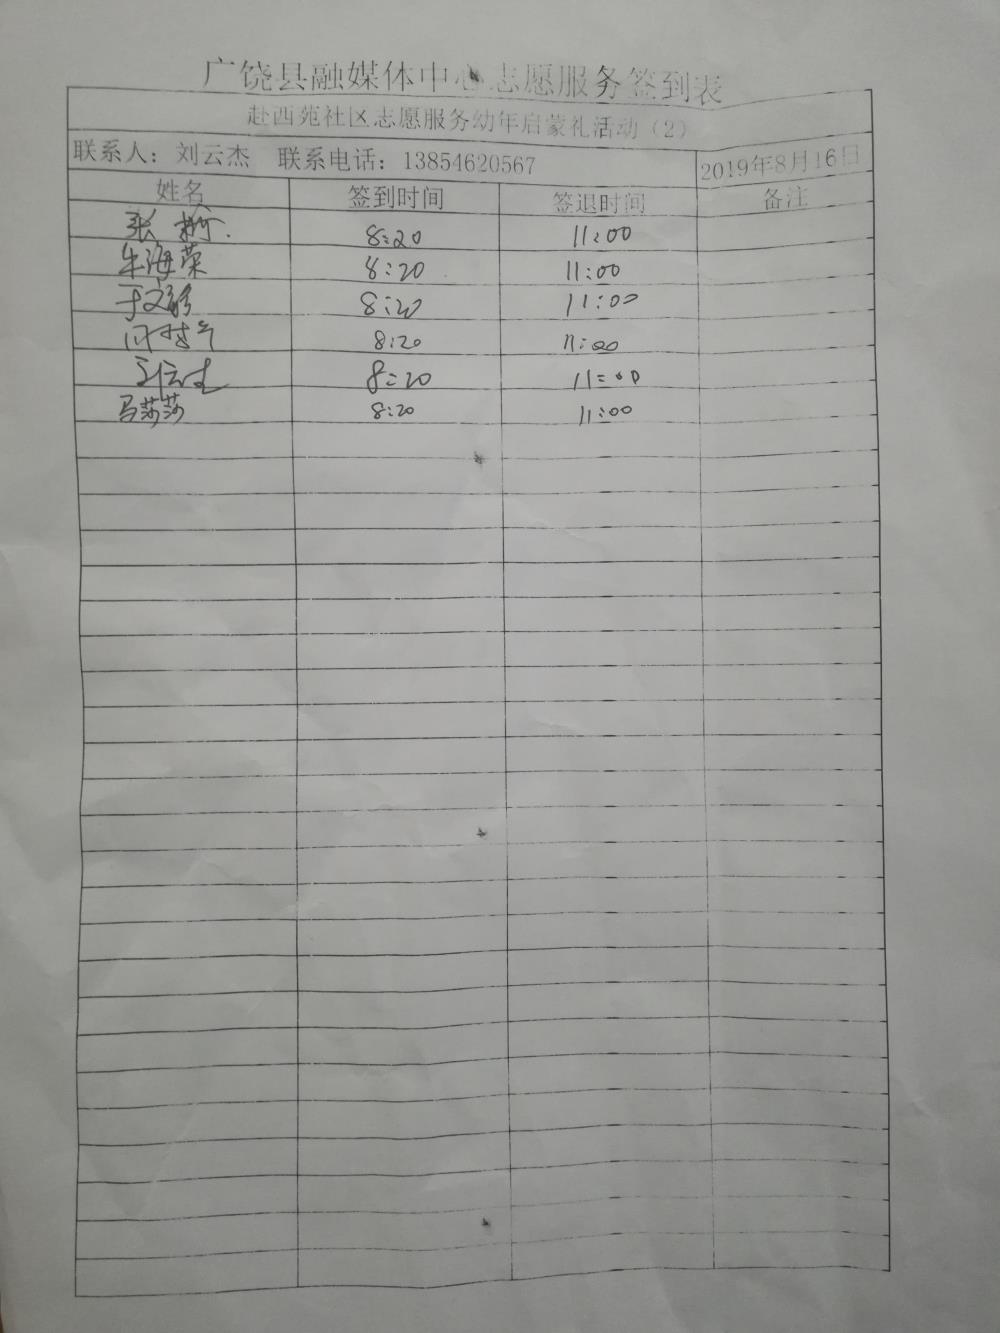 广饶县融媒体中心志愿服务签到表
赴西苑社区志愿服务幼年启蒙礼活动（2）
联系人：刘云杰 联系电话：13854620567 2019年8月16日
姓名 签到时间 签退时间 备注
张 8:20 11:00
朱海荣 8:20 11:00
于文 8:20 11:00
8:20 11:00
8:20 11:00
马莎莎 8:20 11:00